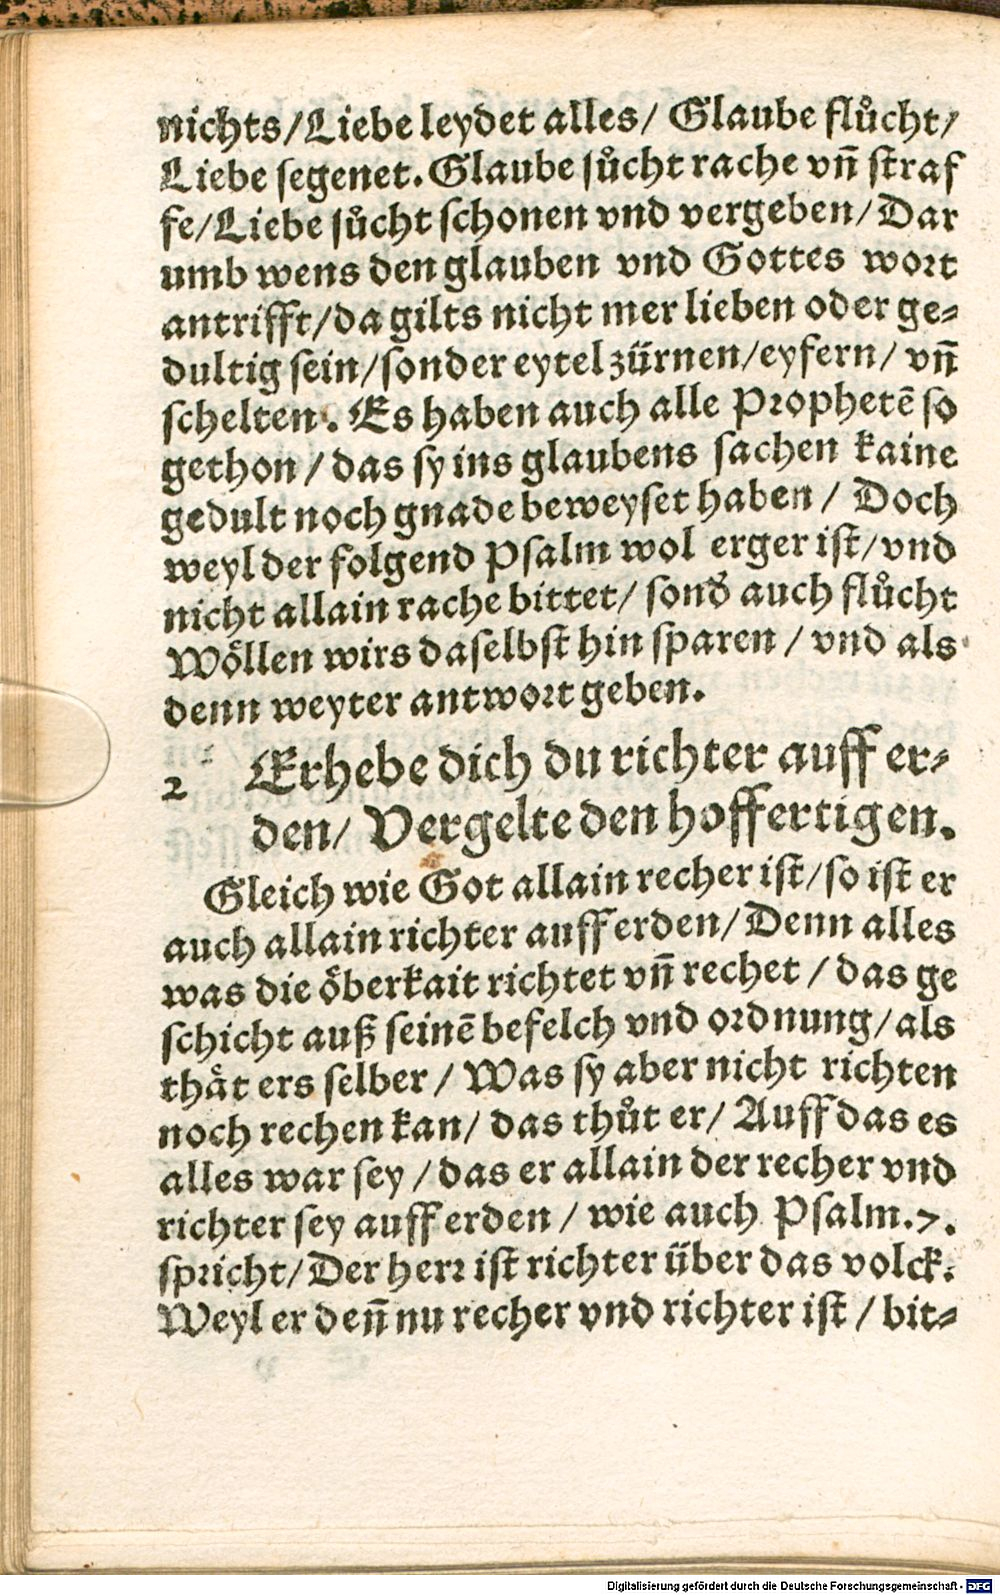 nichts/Liebe leydet alles/ Glaube flůcht/
Liebe segenet. Glaube sůcht rache vn̄ straf
fe/Liebe sůcht schonen vnd vergeben/Dar
umb wens den glauben vnd Gottes wort
antrifft/da gilts nicht mer lieben oder ge-
dultig sein/sonder eytel zürnen/eyfern/ vn̄
schelten. Es haben auch alle Prophetē so
gethon/das sy ins glaubens sachen kaine
gedult noch gnade beweyset haben/ Doch
weyl der folgend Psalm wol erger ist/vnd
nicht allain rache bittet/ sond̕ auch flůcht
Wöllen wirs daselbst hin sparen/vnd als
denn weyter antwort geben.
2 Erhebe dich du richter auff er-
den/ Vergelte den hoffertigen.
Gleich wie Got allain recher ist/so ist er
auch allain richter auff erden/Denn alles
was die öberkait richtet vn̄ rechet/das ge
schicht auß seinē befelch vnd ordnung/als
thät ers selber/Was sy aber nicht richten
noch rechen kan/das thůt er/Auff das es
alles war sey/das er allain der recher vnd
richter sey auff erden/wie auch Psalm.7.
spricht/Der herr ist richter über das volck.
Weyl er den̄ nu recher vnd richter ist/bit-
Digitalisierung gefördert durch die Deutsche Forschungsgemeinschaft - DFG